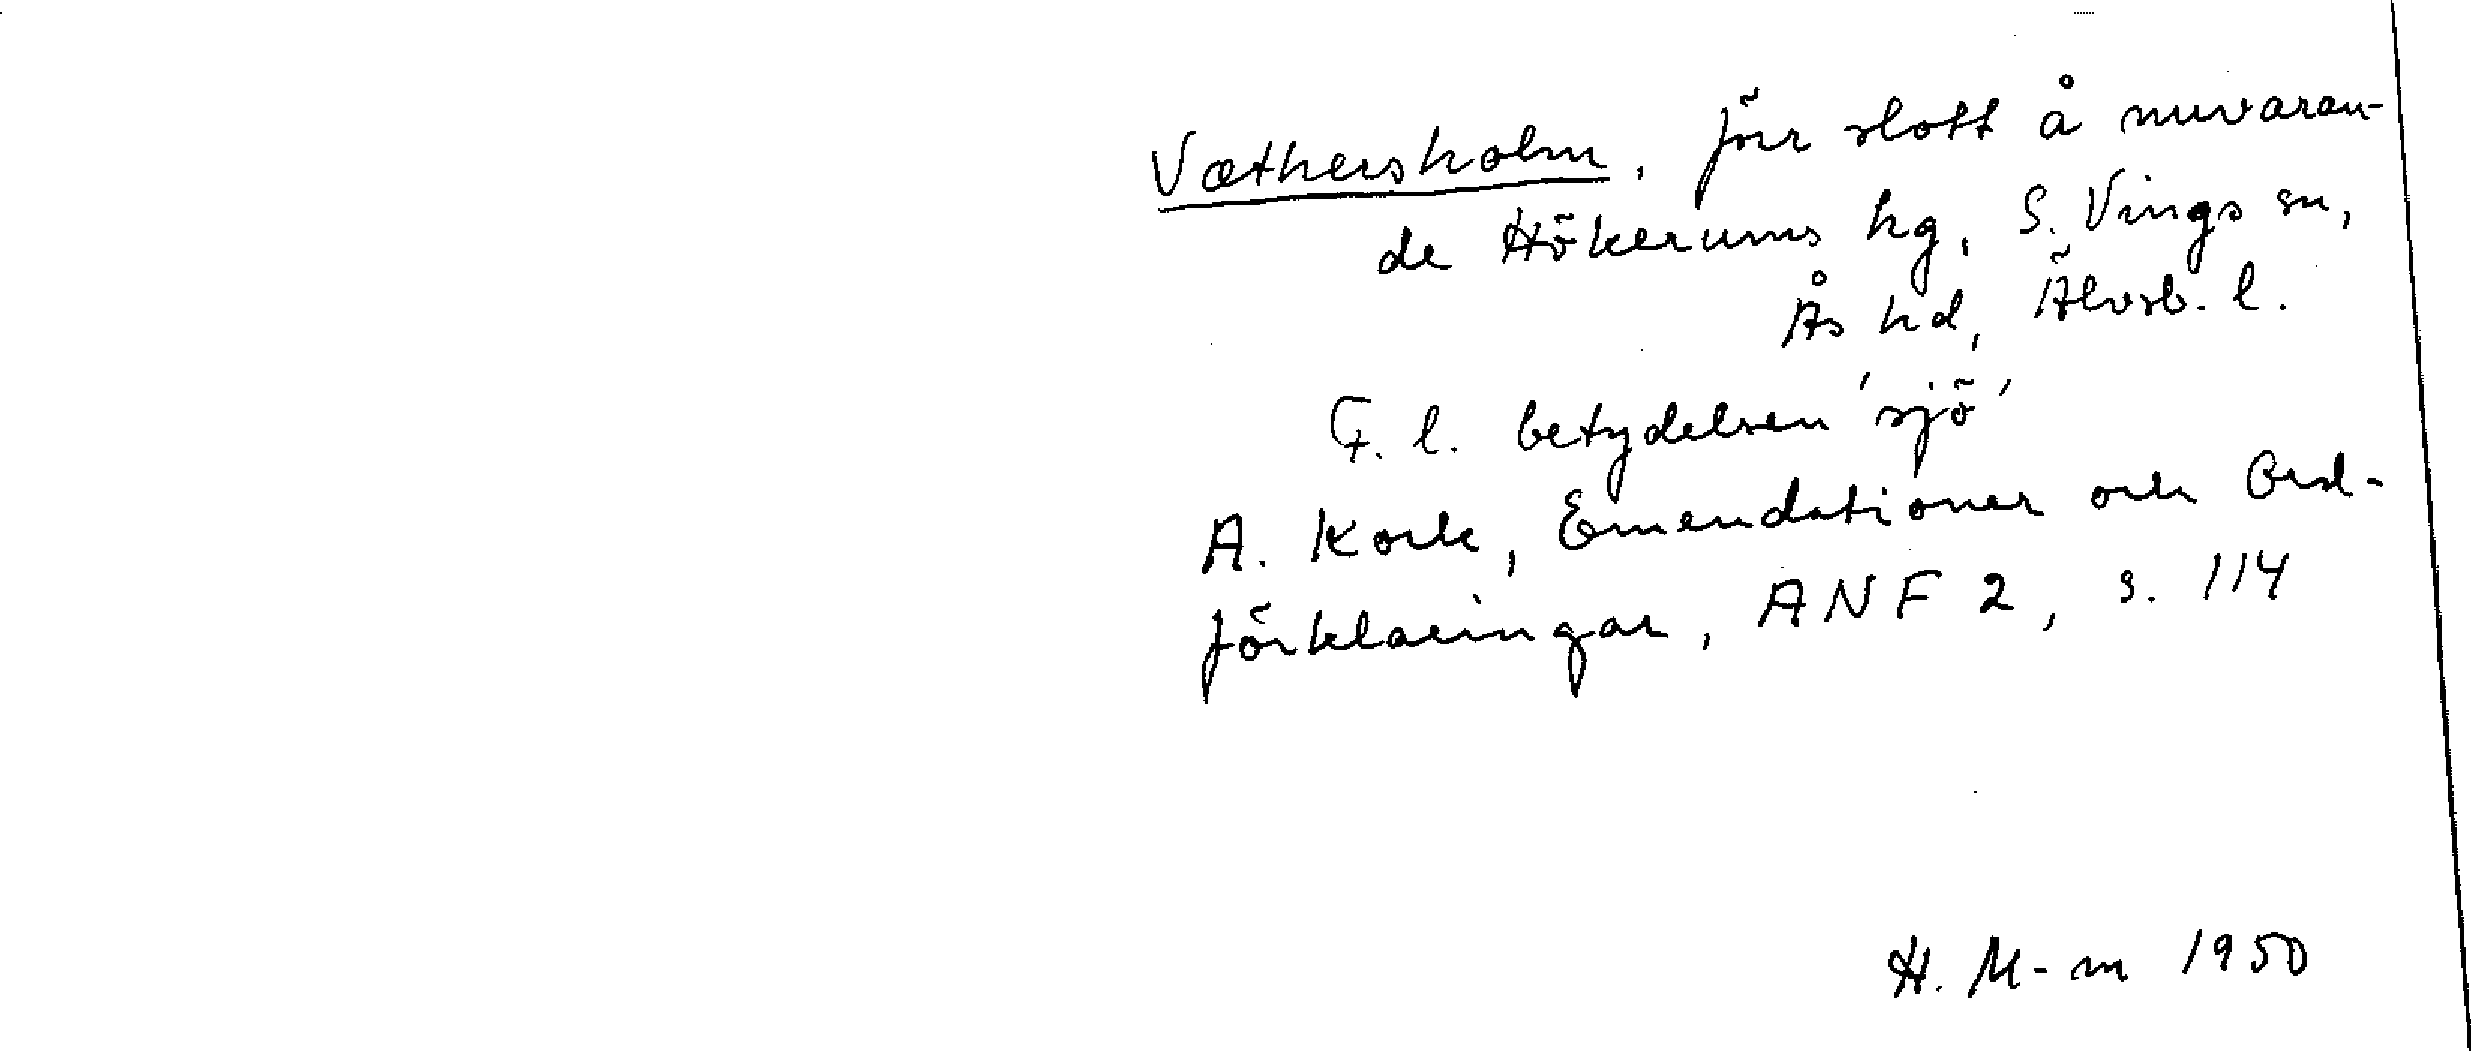 Væthersholm, förr slott å nuvaran-
de Hökerums hg, S. Vings sn,
Ås hd, Älvsb. l.
F. l. betydelsen 'sjö'
A. Kock, Emendationer och Ord-
förklaringar, ANF 2, s. 114
H. M-m 1950